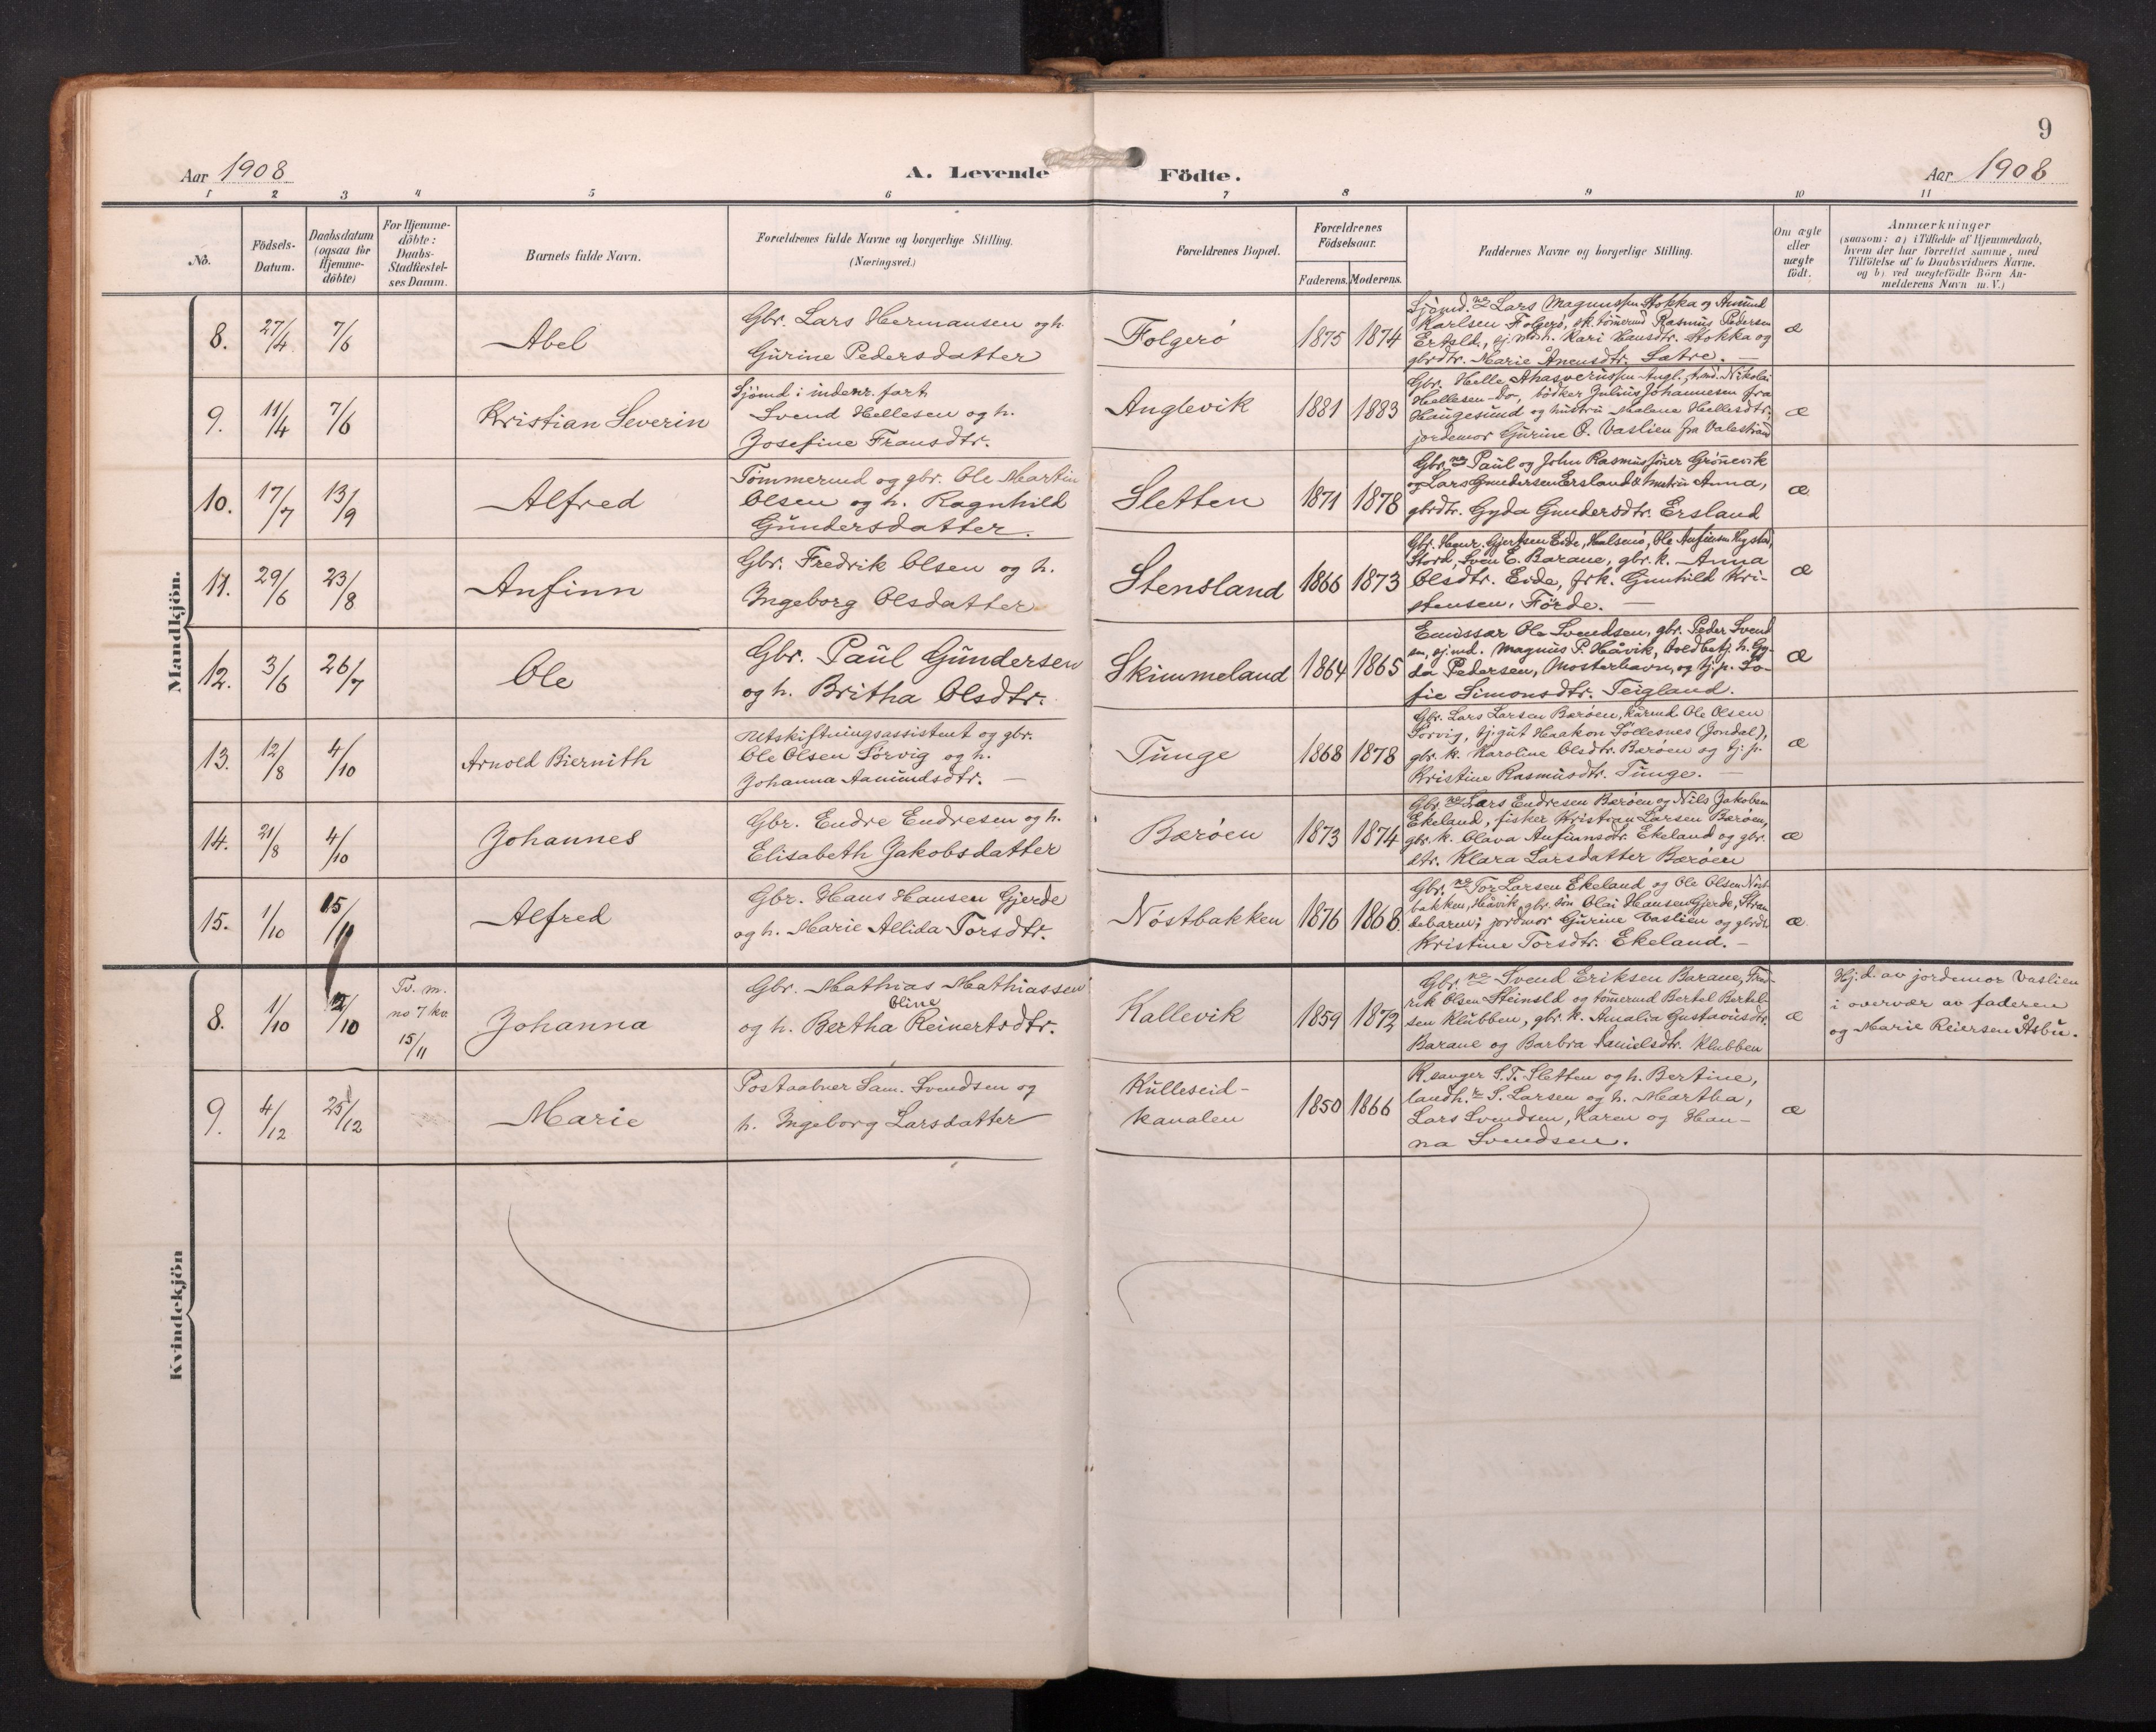 9
Aar 1908
A. Levende Födte.
Aar 1908
1 2 3 4 5 6 7 8 9 10 11
No.
Födsels-
Datum.
Daabsdatum
(ogsaa för
Hjemme-
döbte)
For Hjemme-
döbte:
Daabs-
Stadfæstel-
ses Datum.
Barnets fulde Navn.
Forældrenes fulde Navne og borgerlige Stilling.
(Næringsvei.)
Forældrenes Bopæl.
Forældrenes
Födselsaar.
Faderens. Moderens.
Faddernes Navne og borgerlige Stilling.
Om ægte
eller
uægte
födt.
Anmærkninger
(saasom: a) i Tilfælde af Hjemmedaab,
hvem der har forrettet samme, med
Tilföielse af to Daabsvidners Navne.
og b) ved uægtefödte Börn An-
melderens Navn m. V.)
Mandkjön.
8. 27/4 7/6 Abel
Gbr. Lars Hermansen og h.
Gurine Pedersdatter
Folgerö 1875 1874
Sjömd. ne Lars Magnussen Stokka og Amund
Karlsen Folgerö, sk. tömermd Rasmus Pedersen
Ersld., sj.mds h. Kari Hansdtr. Stokka og
gbrdtr. Marie Ånensdtr. Sætre. —
æ
9. 11/4 7/6 Kristian Severin
Sjömd i indenr. fart
Svend Hellesen og h.
Josefine Fransdtr.
Anglevik 1881 1883
Gbr. Helle Ahasverussen Angl., Nikolai
Hellesen do, bötker Julius Johannesen fra
Haugesund og hustru Malene Hellesdtr,
jordemor Gurine O. Vaslien fra Valestrand
æ
10. 17/7 13/9 Alfred
Tömmermd og gbr. Ole Martin
Olsen og h. Ragnhild
Gundersdatter.
Sletten 1871 1878
Gbr. ne Paul og John Rasmussöner Grönnevik
og Lars Gundersen Ersland & hustru Anna,
gbrdtr. Gyda Gundersdtr. Ersland
æ
11. 29/6 23/8 Anfinn
Gbr. Fredrik Olsen og h.
Ingeborg Olsdatter
Stensland 1866 1873
Gbr. Gjertsen Eide, Halsnö, Ole Anfinsen Hystad,
Stord, Sven E. Barane, gbr. k. Anna
Olsdtr. Eide, frk. Gunhild Kri-
stensen, Förde. —
æ
12. 3/6 26/7 Ole
Gbr. Paul Gundersen
og h. Britha Olsdtr.
Skimmeland 1864 1865
Emissær Ole Svendsen, gbr. Peder Svend
sen, sj.md. Magnus P. Håvik, h. Gy-
da Pedersen, Mosterhavn, og tj. p. So-
fie Simonsdtr. Teigland.
æ
13. 12/8 4/10 Arnold Biernith
Utskiftningsassistent og gbr.
Ole Olsen Sörvig og h.
Johanna Aamundsdtr. —
Tunge 1868 1878
Gbr. Lars Larsen Bæröen, kårmd Ole Olsen
Sörvig, tj.gut Haakon Söllesnes (Jondal),
gbr. k. Karoline Olsdtr. Bæröen og tj. p.
Kristine Rasmusdtr. Tunge. —
æ
14. 21/8 4/10 Johannes
Gbr. Endre Endresen og h.
Elisabeth Jakobsdatter
Bæröen 1873 1874
Gbr. ne Lars Endresen Bæröen og Nils Jakobsen
Ekeland, fisker Kristian Larsen Bæröen,
gbr. k. Olava Anfinnsdtr. Ekeland og gbr.
dtr. Klara Larsdatter Bæröen
æ
15. 1/10 15/11 Alfred
Gbr. Hans Hansen Gjerde
og h. Marie Allida Torsdtr.
Nöstbakken 1876 1868.
Gbr. ne Tor Larsen Ekeland og Ole Olsen Nöst-
bakken, Håvik, gbr. sön Olai Hansen Gjerde, Stran
debarm; jordmor Gurine Vaslien og gbrdtr.
Kristine Torsdtr. Ekeland. —
æ
Kvindekjön
8. 1/10 /10
Tv. m.
no 7 kv.
15/11
Johanna
Gbr. Mathias Mathiassen
og h. Bertha Oline Reinertsdtr.
Kallevik 1859 1872
Gbr. ne Svend Eriksen Barane, Fred-
rik Olsen Steinsld og tömermd Bertel Bertel-
sen Klubben, gbr. k. Amalia Gustavusdtr.
Barane og Barbra Danielsdtr. Klubben
æ
Hj. d. av jordemor Vaslien
i overvær av faderen
og Marie Reiersen Åsbu.
9. 4/12 25/12 Marie
Postaabner Sam. Svendsen og
h. Ingeborg Larsdatter
Kulleseid-
kanalen
1850 1866
K. sanger S. T. Sletten og h. Bertine,
landh. r S. Larsen og h. Martha,
Lars Svendsen, Karen og Han-
na Svendsen.
æ